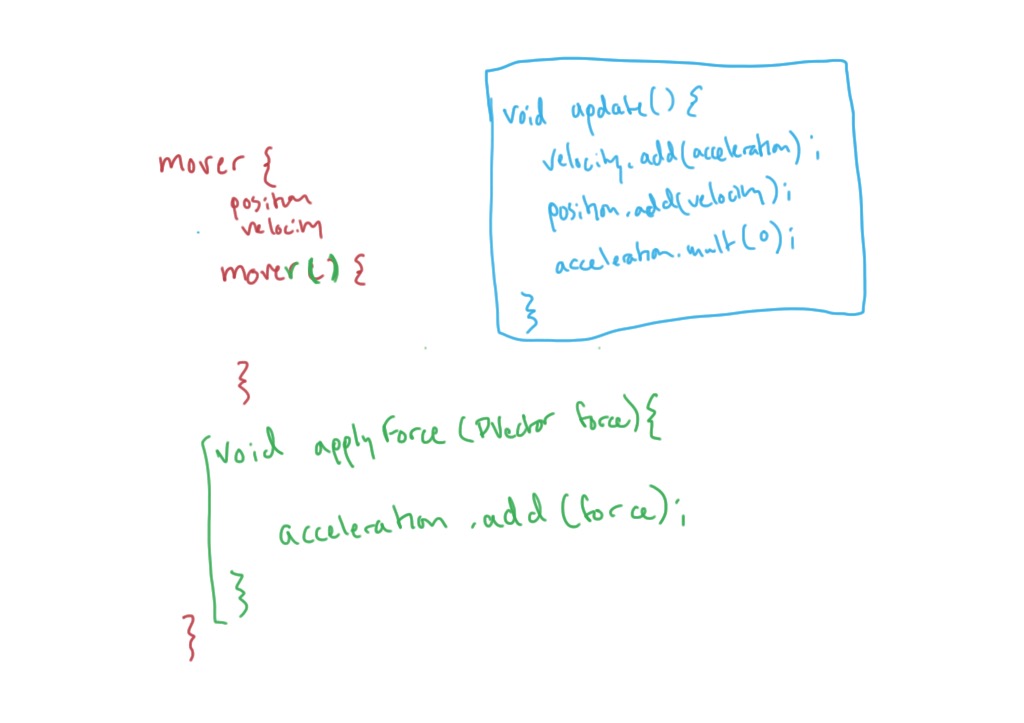 mover {
position
velocity
mover() {
}
void applyForce (PVector force){
acceleration .add (force);
}
}
void update() {
velocity.add(acceleration);
position.add(velocity);
acceleration.mult(0);
}